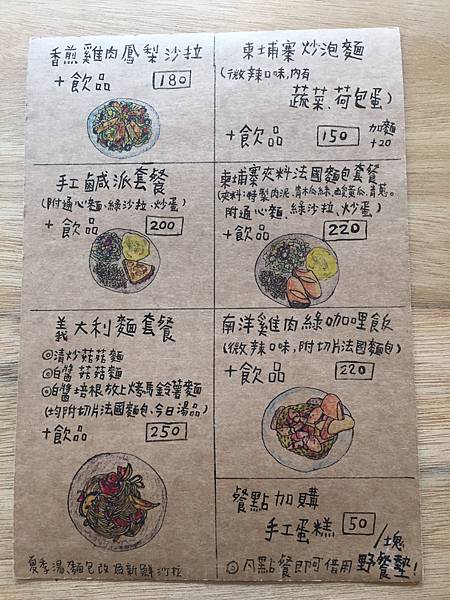 香煎雞肉鳳梨沙拉
+飲品 180
柬埔寨炒泡麵
(微辣口味,內有
蔬菜、荷包蛋)
+飲品 150 加麵
+20
手工鹹派套餐
(附通心麵、綠沙拉、炒蛋)
+飲品 200
柬埔寨夾料法國麵包套餐
(夾料:特製肉泥、青木瓜絲、酸黃瓜、青蔥。
附通心麵、綠沙拉、炒蛋)
+飲品 220
義大利麵套餐
◎清炒菇菇麵
◎白醬菇菇麵
◎白醬培根放上烤馬鈴薯麵
(均附切片法國麵包、今日湯品)
+飲品 250
南洋雞肉綠咖哩飯
(微辣口味,附切片法國麵包)
+飲品 220
餐點加購
手工蛋糕 50/塊
◎凡點餐即可借用野餐墊!
夏季湯、麵包改為新鮮沙拉